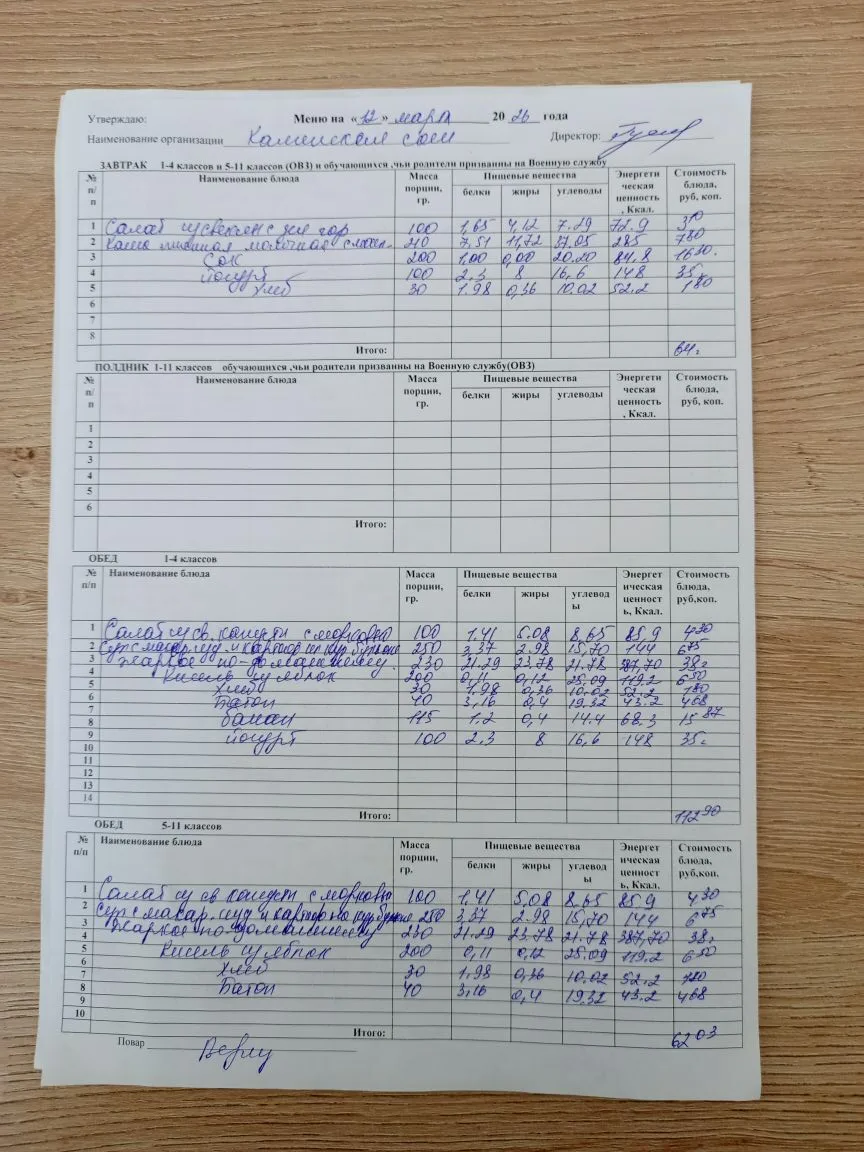 Утверждаю: Меню на «12» марта 2026 года
Наименование организации Каминская сош Директор:
ЗАВТРАК 1-4 классов и 5-11 классов (ОВЗ) и обучающихся ,чьи родители призванны на Военную службу
№ п/п Наименование блюда Масса порции, гр. Пищевые вещества белки жиры углеводы Энергети ческая ценность , Ккал. Стоимость блюда, руб, коп.
1 Салат из свеклы с зел гор 100 1,65 4,12 7.29 72.9
2 Каша пшенная молочная с маслом 210 7.51 11,72 37.05 285 780
3 Сок 200 1,00 0,00 20.20 84,8
4 йогурт 100 2,3 8 16,6 148 35-
5 хлеб 30 1.98 0,36 10.02 52.2 180
6
7
8
Итого: 64-
ПОЛДНИК 1-11 классов обучающихся ,чьи родители призванны на Военную службу(ОВЗ)
№ п/п Наименование блюда Масса порции, гр. Пищевые вещества белки жиры углеводы Энергети ческая ценность , Ккал. Стоимость блюда, руб, коп.
1
2
3
4
5
6
Итого:
ОБЕД 1-4 классов
№ п/п Наименование блюда Масса порции, гр. Пищевые вещества белки жиры углевод ы Энергет ическая ценност ь, Ккал. Стоимость блюда, руб,коп.
1 Салат из св. капусты с морковью 100 1.41 5.08 8,65 85,9 430
2 Суп с макар. изд. и картоф на кур бульоне 250 3,37 2.98 15,70 144 675
3 Жаркое по-домашнему 230 21.29 23,78 21.78 387,70 38-
4 Кисель из яблок 200 0,11 0,12 25.09 119.2 650
5 Хлеб 30 1.98 0,36 10.02 52.2 180
6 Батон 40 3,16 0,4 19.32 43.2 468
7 банан 115 1.2 0,4 14.4 68.3 1587
8 йогурт 100 2.3 8 16,6 148 35-
9
10
11
12
13
14
Итого: 11290
ОБЕД 5-11 классов
№ п/п Наименование блюда Масса порции, гр. Пищевые вещества белки жиры углевод ы Энергет ическая ценност ь, Ккал. Стоимость блюда, руб,коп.
1 Салат из св капусты с морковью 100 1,41 5,08 8,65 85.9 430
2 Суп с макар. изд и картоф на кур бульоне 250 3,37 2.98 15,70 144 675
3 Жаркое по-домашнему 230 21.29 23.78 21.78 387,70 38-
4 Кисель из яблок 200 0,11 0,12 25.09 119.2 650
5 Хлеб 30 1,98 0,36 10.02 52.2
6 Батон 40 3,16 0,4 19.32 43.2 468
7
8
9
10
Итого: 6203
Повар